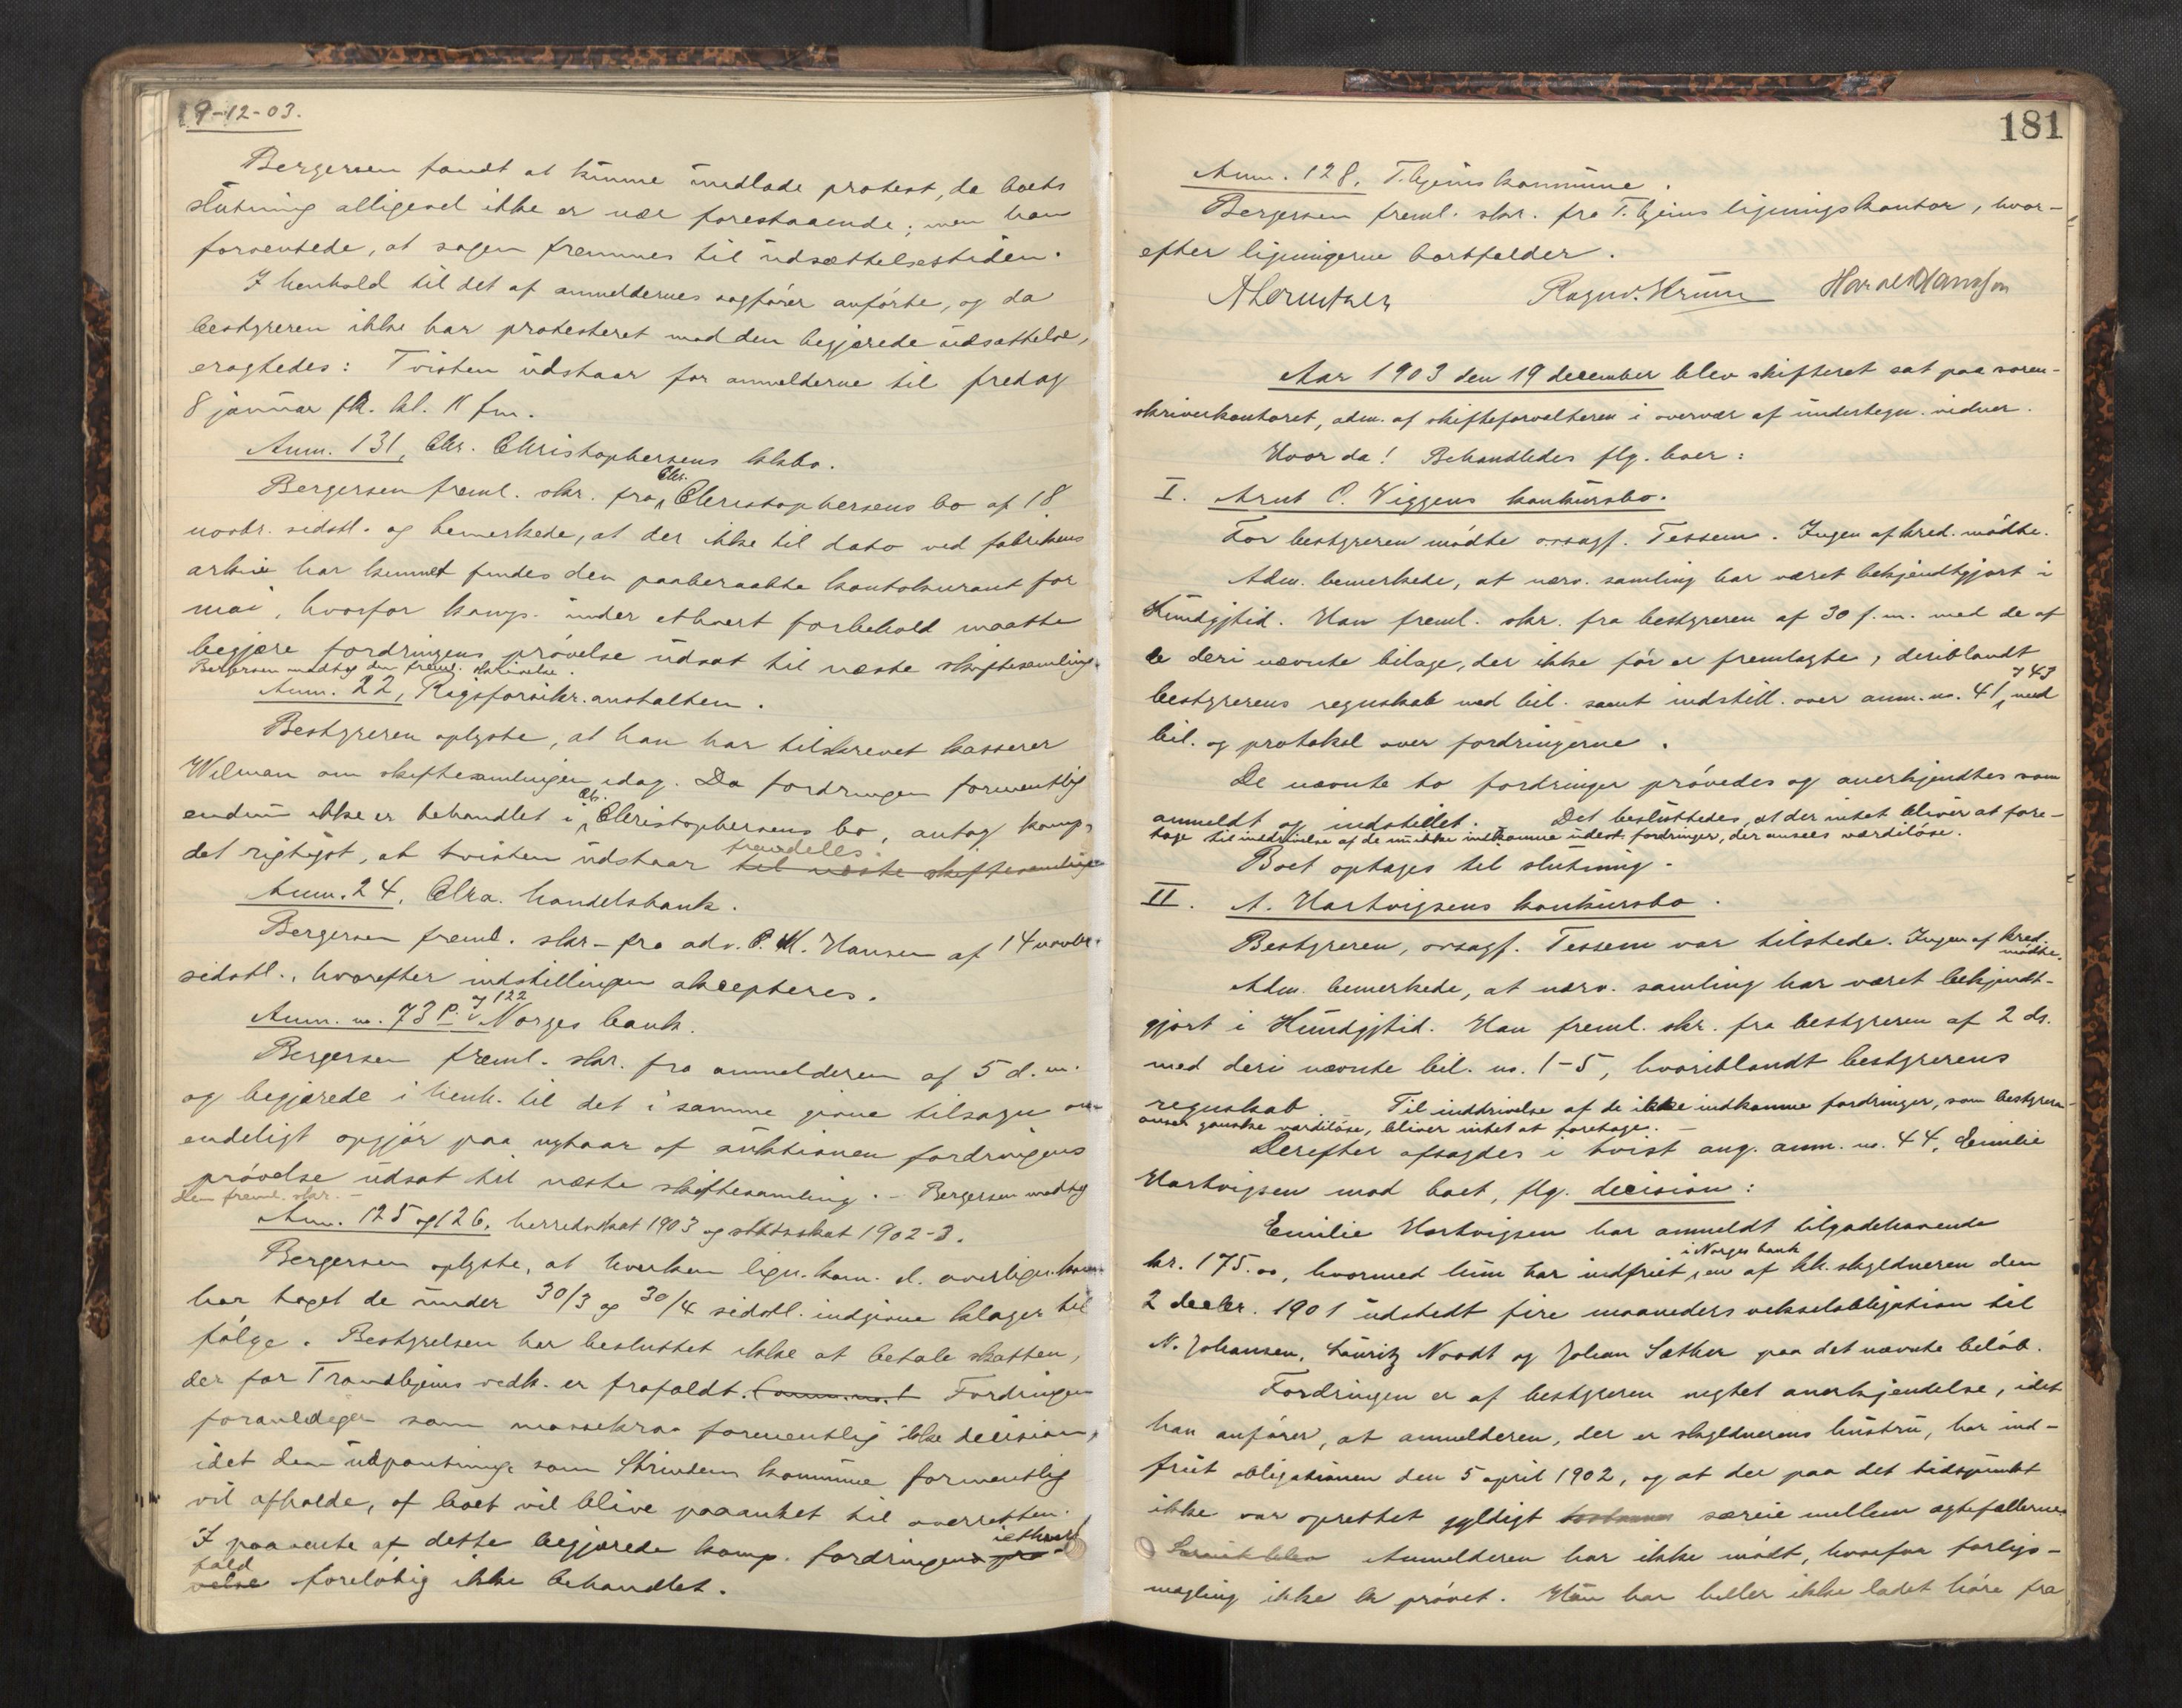 19-12-03.
Bergersen fandt at kunne undlade protest, da boets
slutning alligevel ikke er nær forestaaende; men han
forventede, at sagen fremmes til udsættelsestiden.
I henhold til det af anmeldernes sagfører anførte, og da
bestyreren ikke har protesteret mod den begjærede udsættelse,
eragtedes: Tvisten udstaar for anmelderne til fredag
8 januar fk. kl. 11 fm.
Anm. 131, Chr. Christophersens kkbo.
Bergersen freml. skr. fra Chr. Christophersens bo af 18
novbr. sidstl. og bemerkede, at der ikke til dato ved fabrikens
arkiv har kunnet findes den paaberaabte kontokurant for
mai, hvorfor komp. under ethvert forbehold maatte
begjære fordringens prøvelse udsat til næste skiftesamling.
Bergersen modtog den freml. skrivelse.
Anm. 22, Rigsforsikr.anstalten.
Bestyreren oplyste, at han har tilskrevet kasserer
Wilman om skiftesamlingen idag. Da fordringen formentlig
endnu ikke er behandlet i Chr. Christophersens bo, antog komp.
det rigtigst, at tvisten udstaar fremdeles. til næste skiftesamling
Anm. 24, Chra. handelsbank.
Bergersen freml. skr. fra adv. P. M. Hansen af 14 novbr.
sidstl., hvorefter indstillingen akcepteres.
Anm. no. 73 P. og 122 Norges bank.
Bergersen freml. skr. fra anmelderen af 5 d.m.
og begjærede i henh. til det i samme givne tilsagn om
endeligt opgjør paa nytaar af auktionen fordringens
prøvelse udsat til næste skiftesamling. - Bergersen modtog
den freml. skr. -
Anm. 125 og 126, herredsskat 1903 og statsskat 1902-3.
Bergersen oplyste, at hverken lign.kom. el. overlign.kom.
har taget de under 30/3 og 30/4 sidstl. indgivne klager til
følge. Bestyrelsen har besluttet ikke at betale skatten,
der for Trondhjems vedk. er frafaldt. (anm. no. 1 Fordringen
foranlediger som massekrav formentlig ikke decision,
idet den udpantning som Strindens kommune formentlig
vil afholde, af boet vil blive paaanket til overretten.
I paavente af dette begjærede komp. fordringens prø- iethvert
fald velse foreløbig ikke behandlet.
181
Anm. 128, T.hjems kommune.
Bergersen freml. skr. fra T.hjems ligningskontor, hvor-
efter ligningerne bortfalder.
Ragnv. Krum Harald Hansson
Aar 1903 den 19 december blev skifteret sat paa soren-
skriverkontoret, adm. af skifteforvalteren i overvær af undertegn. vidner.
Hvor da! Behandledes flg. boer:
I. Arnt O. Viggens konkursbo.
For bestyreren mødte orsagf. Tessem. Ingen af kred. mødte.
Adm. bemerkede, at nærv. samling har været bekjendtgjort i
Kundgjtid. Han freml. skr. fra bestyreren af 30 f.m. med de af
deri nævnte bilage, der ikke før er fremlagte, deriblandt
bestyrerens regnskab med bil. samt indstill. over anm. no. 41 og 43 med
bil. og protokol over fordringerne.
De nævnte to fordringer prøvedes og anerkjendtes som
anmeldt og indstillet. Det besluttedes, at der intet bliver at fore-
tage til inddrivelse af de nu ikke indkomne udest. fordringer, der ansees værdiløse.
Boet optages til slutning.
II. A. Hartvigsens konkursbo.
Bestyreren, orsagf. Tessem var tilstede. Ingen af kred.
mødte.
Adm. bemerkede, at nærv. samling har været bekjendt-
gjort i Kundgjtid. Han freml. skr. fra bestyreren af 2 ds.
med deri nævnte bil. no. 1-5, hvoriblandt bestyrerens
regnskab. Til inddrivelse af de ikke indkomne fordringer, som bestyreren
anser ganske værdiløse, bliver intet at foretage. -
Derefter afsagdes i tvist ang. anm. no. 44, Emilie
Hartvigsen mod boet, flg. decision:
Emilie Hartvigsen har anmeldt tilgodehavende
kr. 175.00, hvormed hun har indfriet i Norges bank en af kk. skyldneren den
2 decbr. 1901 udstedt fire maaneders vekselobligation til
N. Johansen, Lauritz Noodt og Johan Sæther paa det nævnte beløb.
Fordringen er af bestyreren negtet anerkjendelse, idet
han anfører, at anmelderen, der er skyldnerens hustru, har ind-
friet obligationen den 5 april 1902, og at der paa det tidspunkt
ikke var oprettet gyldigt særeie mellem ægtefællerne.
Anmelderen har ikke mødt, hvorfor forligs-
mægling ikke er prøvet. Hun har heller ikke ladet høre fra